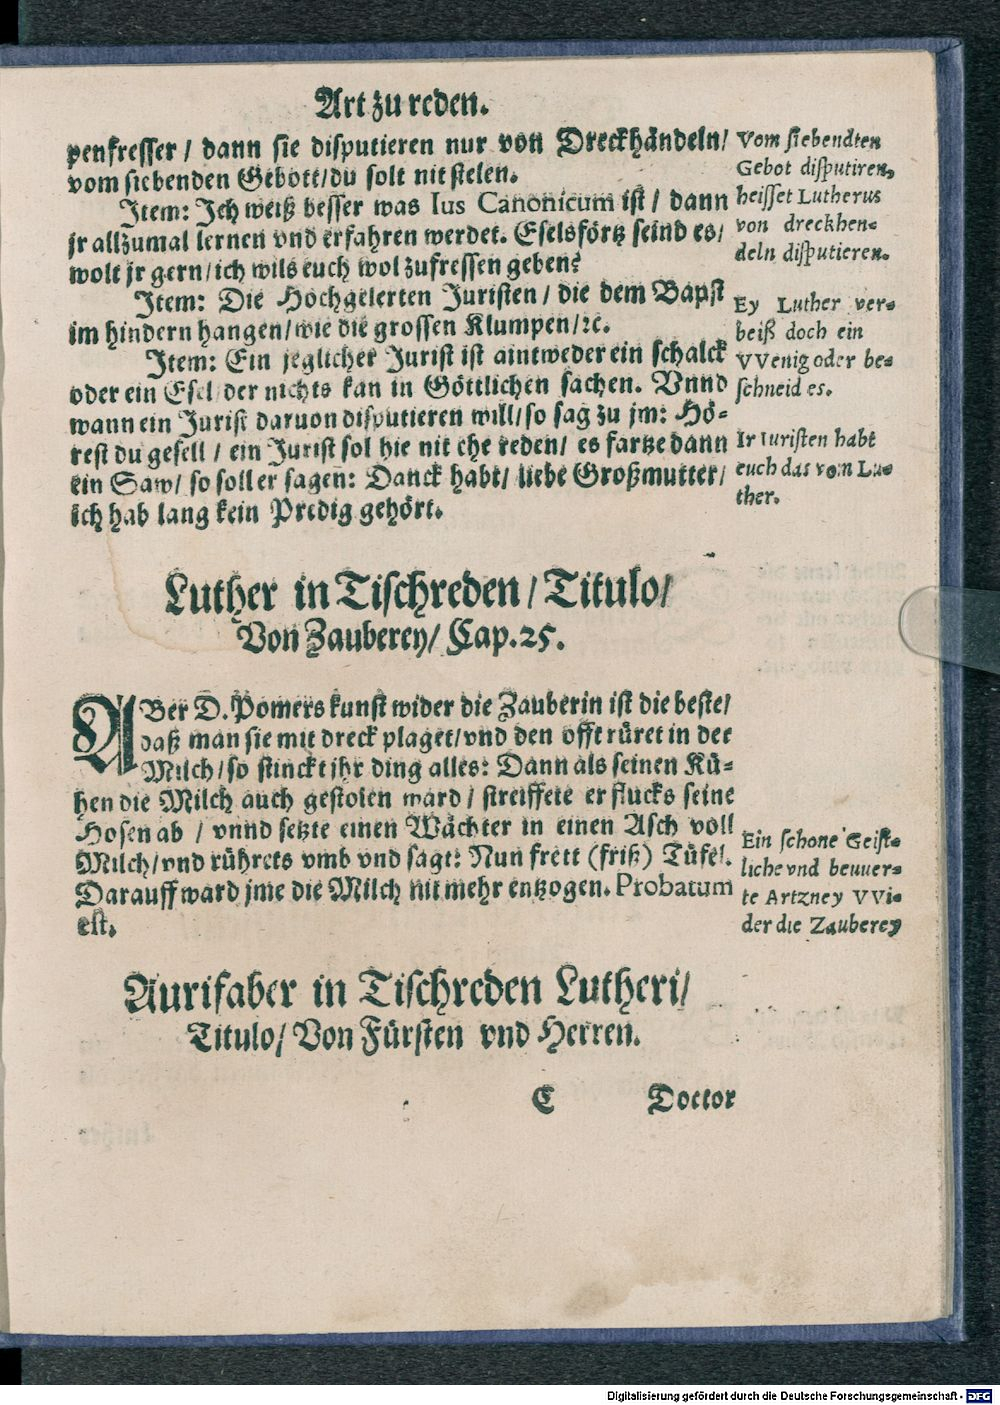 Art zu reden.
penfresser / dann sie disputieren nur von Dreckhändeln/
vom siebenden Gebott/du solt nit stelen.
Item: Ich weiß besser was Ius Canonicum ist / dann
jr allzumal lernen vnd erfahren werdet. Eselsförtz seind es/
wolt jr gern/ich wils euch wol zufressen geben?
Item: Die Hochgelerten Juristen / die dem Bapst
im hindern hangen/wie die grossen Klumpen/ꝛc.
Item: Ein jeglicher Jurist ist aintweder ein schalck
oder ein Esel/der nichts kan in Göttlichen sachen. Vnnd
wann ein Jurist daruon disputieren will/so sag zu jm: Hö-
rest du gesell / ein Jurist sol hie nit ehe reden/ es fartze dann
ein Saw/ so soll er sagen: Danck habt/ liebe Großmutter/
ich hab lang kein Predig gehört.
Vom siebendten
Gebot disputiren,
heisset Lutherus
von dreckhen-
deln disputieren.
Ey Luther ver-
beiß doch ein
VVenig oder be-
schneid es.
Ir Iuristen habt
euch das vom Lu-
ther.
Luther in Tischreden / Titulo/
Von Zauberey/ Cap.25.
ABer D. Pomers kunst wider die Zauberin ist die beste/
daß man sie mit dreck plaget/vnd den offt rüret in der
Milch/so stinckt jhr ding alles: Dann als seinen Kü-
hen die Milch auch gestolen ward / streiffete er flucks seine
Hosen ab / vnnd setzte einen Wächter in einen Asch voll
Milch/vnd rührets vmb vnd sagt: Nun frett (friß) Tüfel.
Darauff ward jme die Milch nit mehr entzogen. Probatum
est.
Ein schone Geist-
liche vnd bevver-
te Artzney VVi-
der die Zauberey
Aurifaber in Tischreden Lutheri/
Titulo/ Von Fürsten vnd Herren.
C Doctor
Digitalisierung gefördert durch die Deutsche Forschungsgemeinschaft - DFG